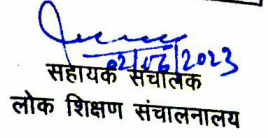 02/06/2023
सहायक संचालक
लोक शिक्षण संचालनालय